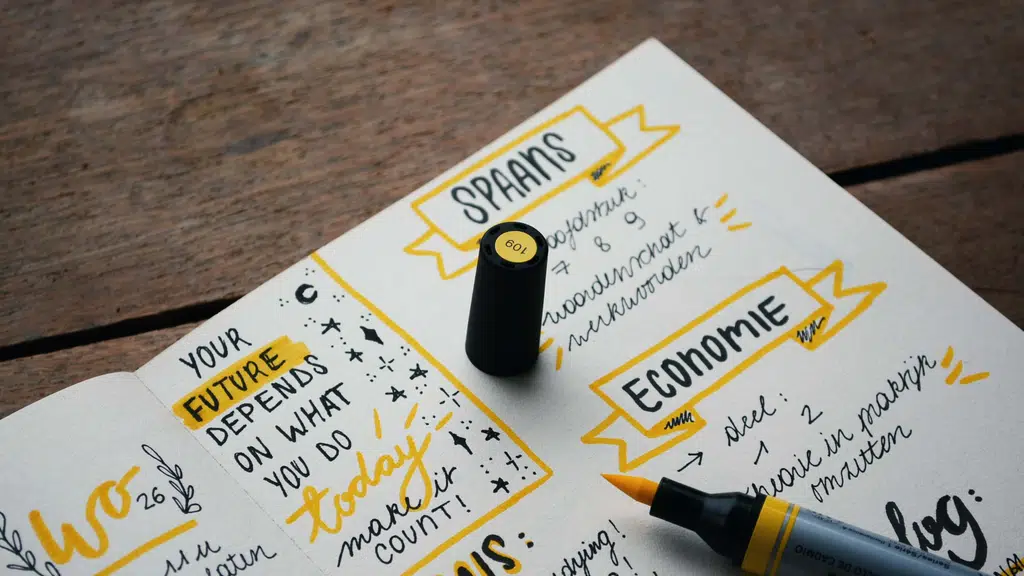 SPAANS
hoofdstuk:
7 8 9
woordenschat &
werkwoorden
109
ECONOMIE
→ deel:
1 2
theorie in praktijk
omzetten
YOUR
FUTURE
DEPENDS
ON WHAT
YOU DO
today
make it
COUNT!
wo
26